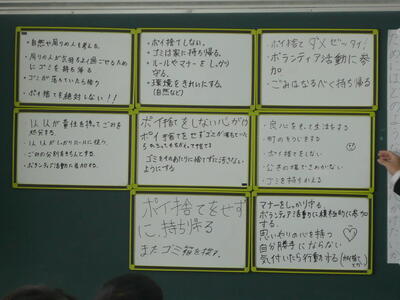 ・自然や周りの人を考えた
・周りの人が気持ちよく過ごせるために ゴミを持ち帰る
・ゴミが落ちていたら拾う
・ポイ捨てを絶対しない!!
・ポイ捨てしない。
・ゴミは家に持ち帰る。
・ルールやマナーをしっかり守る。
・環境をきれいにする。
(自然など)
・ポイ捨てダメゼッタイ!
・ボランティア活動に参加
・ごみはなるべく持ち帰る
・1人1人が責任を持ってごみを処分する。
・1人1人がしっかりルールに従う。
・ごみの分別をきちんとする。
・ボランティア活動に参加する。
ポイ捨てをしない心がけ
ゴミをそのあたりに捨てずに汚さないようにする
・良心をもって生活をする
・町のそうじをする
・ポイ捨てをしない
・ゴミを持ちかえる
ポイ捨てをせずに、持ち帰る
またゴミ箱を探す。
マナーをしっかり守る
ボランティア活動に積極的に参加する。
思いやりの心を持つ
自分勝手にならない
気付いたら行動する